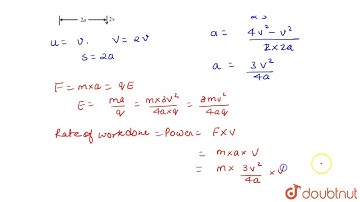 2a 2v
u = v. V = 2v
S = 2a
a = 4v² - v² / 2×2a
a = 3v² / 4a
F = m×a = qE
E = ma / q = m×3v² / 4a×q = 3mv² / 4aq
Rate of work done = Power = F×V
= m×a×V
= m × 3v² / 4a × v
doubtnut